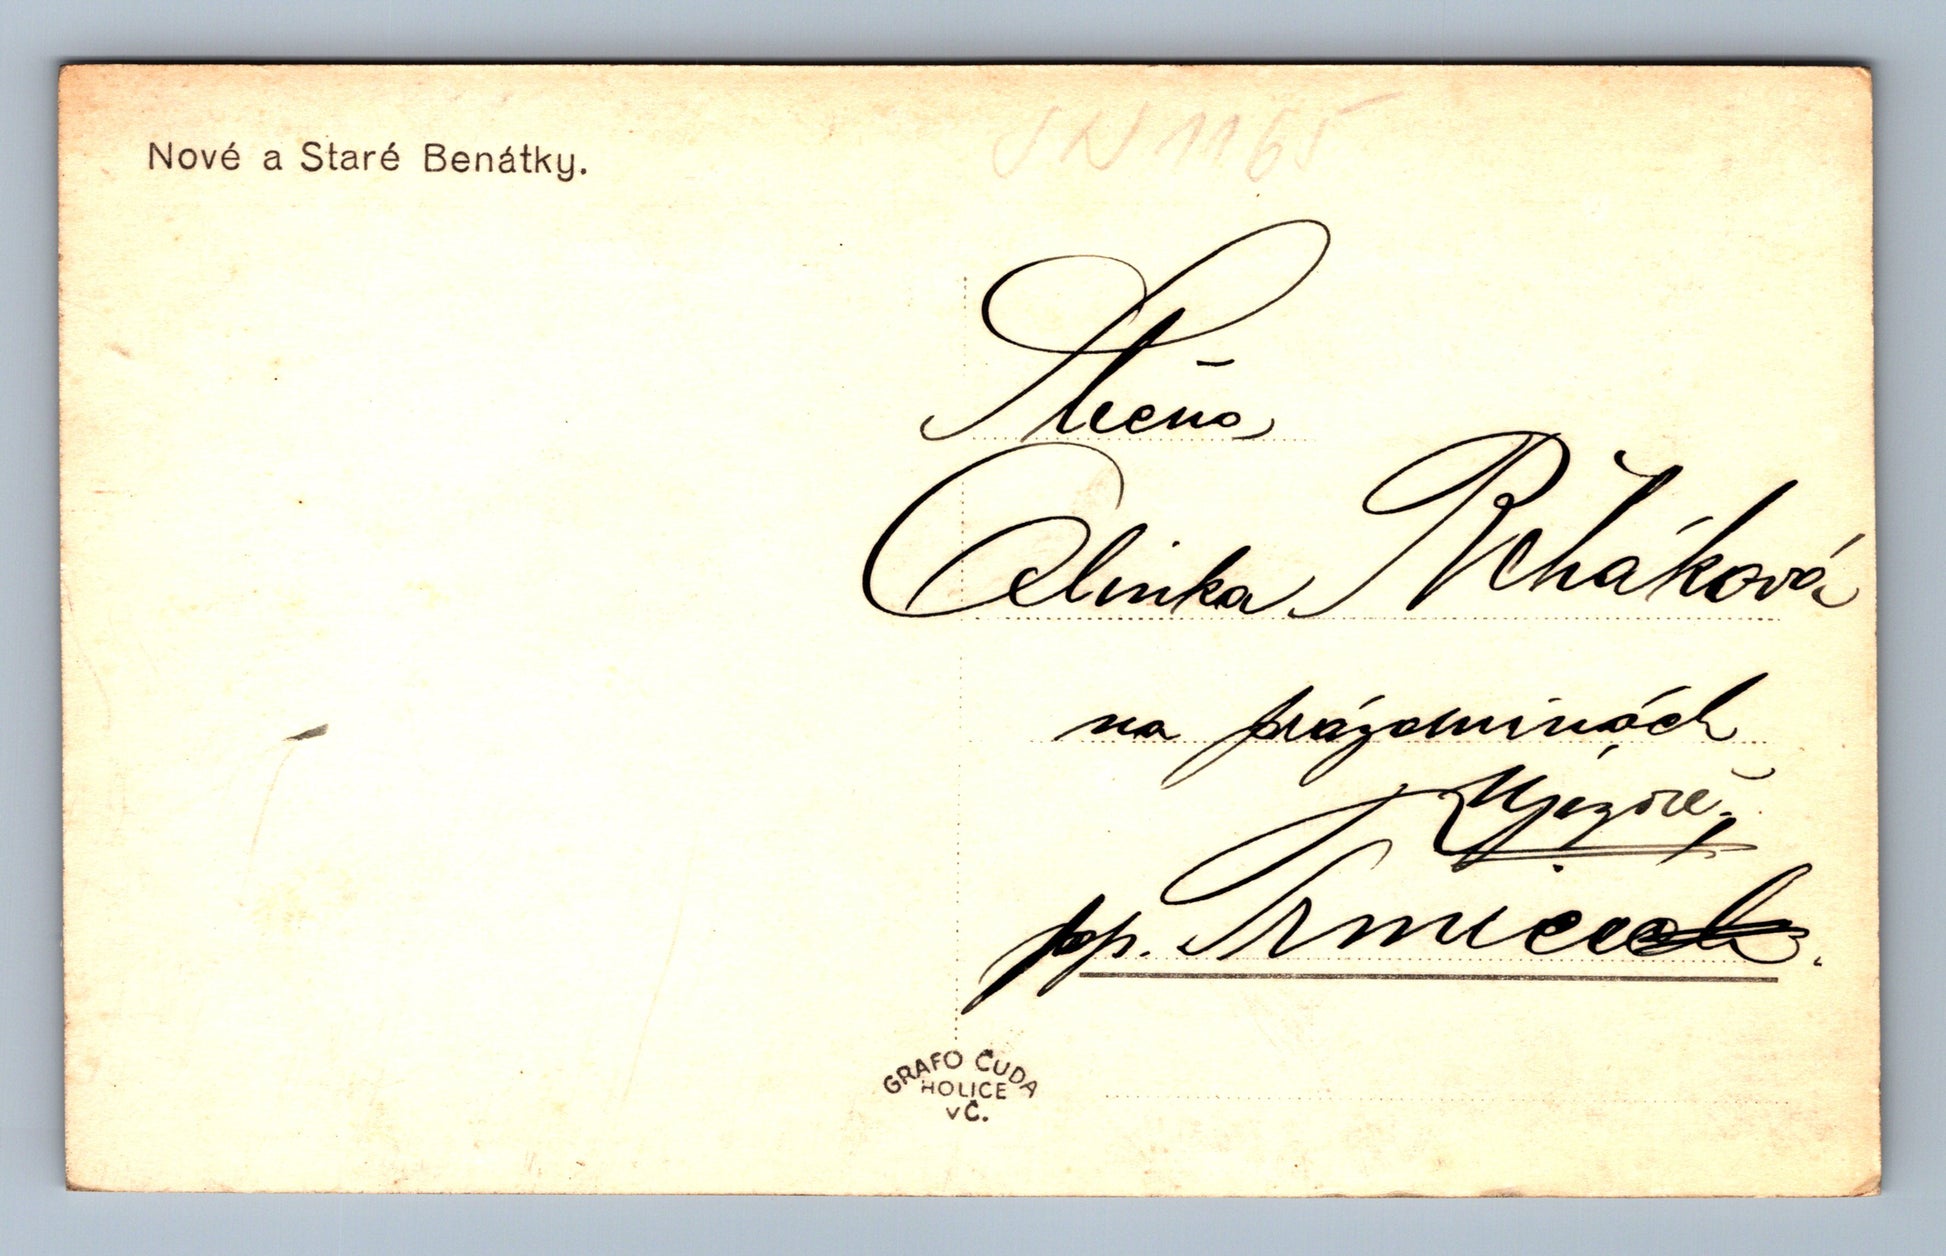 Nové a Staré Benátky.
JN 1165
Slečna
Celinka Řeháková
na prázdninách
Újezdě
pp.
GRAFO ČUDA
HOLICE
VČ.